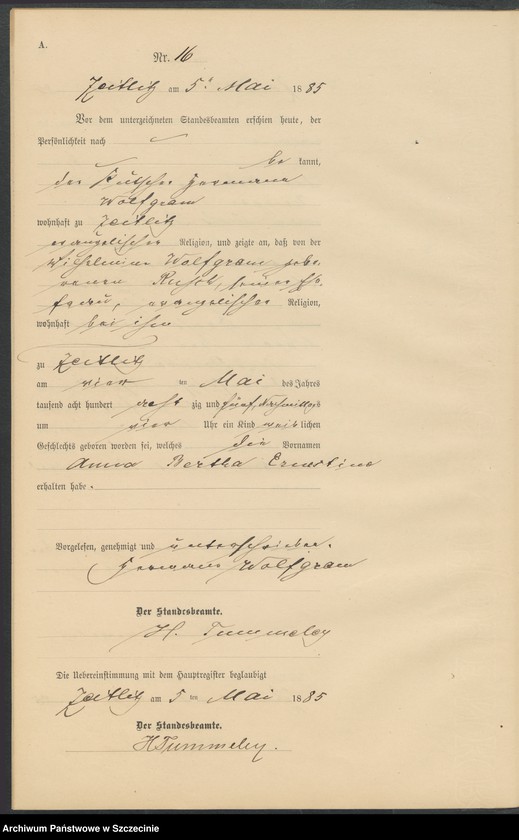 A.
Nr. 16
Zeitlitz am 5ten Mai 1885
Vor dem unterzeichneten Standesbeamten erschien heute, der
Persönlichkeit nach
be kannt,
der Kutscher Hermann
Wolfgram
wohnhaft zu Zeitlitz
evangelischer Religion, und zeigte an, daß von der
Wilhelmine Wolfgram gebo-
renen seiner Eh-
frau, evangelischer Religion,
wohnhaft bei ihm
zu Zeitlitz
am vier ten Mai des Jahres
tausend acht hundert acht zig und fünf, Nachmittags
um vier Uhr ein Kind weib lichen
Geschlechts geboren worden sei, welches die Vornamen
Anna Bertha Ernestine
erhalten habe.
Vorgelesen, genehmigt und unterschrieben.
Hermann Wolfgram
Der Standesbeamte.
H. Tummeley
Die Uebereinstimmung mit dem Hauptregister beglaubigt
Zeitlitz am 5 ten Mai 1885
Der Standesbeamte.
H Tummeley.
Archiwum Państwowe w Szczecinie